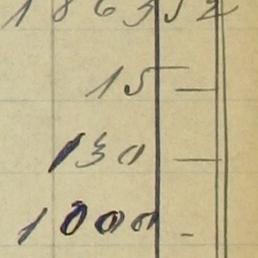 18635 2
15 —
130 —
1000 -